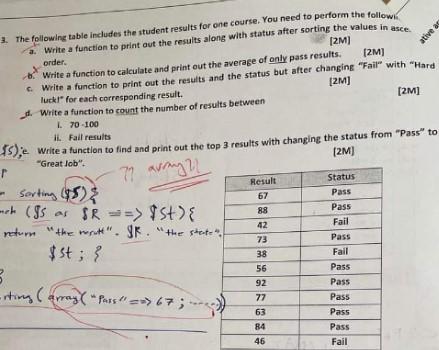 3. The following table includes the student results for one course. You need to perform the
a. Write a function to print out the results along with status after sorting the values in
order. [2M]
b. Write a function to calculate and print out the average of only pass results. [2M]
c. Write a function to print out the results and the status but after changing "Fail" with "Hard
luck!" for each corresponding result. [2M]
d. Write a function to count the number of results between [2M]
i. 70 -100
ii. Fail results
e. Write a function to find and print out the top 3 results with changing the status from "Pass" to
"Great Job". [2M]
?? array ??
Sorting ($S) {
($S as $R ==> $St) {
return "the result". $R. "the state".
$St ; }
(array("Pass" ==> 67 ; ......))
Result Status
67 Pass
88 Pass
42 Fail
73 Pass
38 Fail
56 Pass
92 Pass
77 Pass
63 Pass
84 Pass
46 Fail